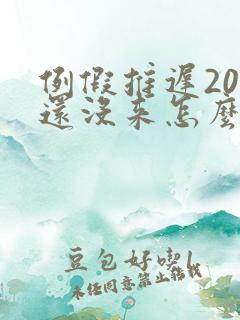 例假推遲20
還沒來怎麼
豆包好喫|
未经同意禁止转载